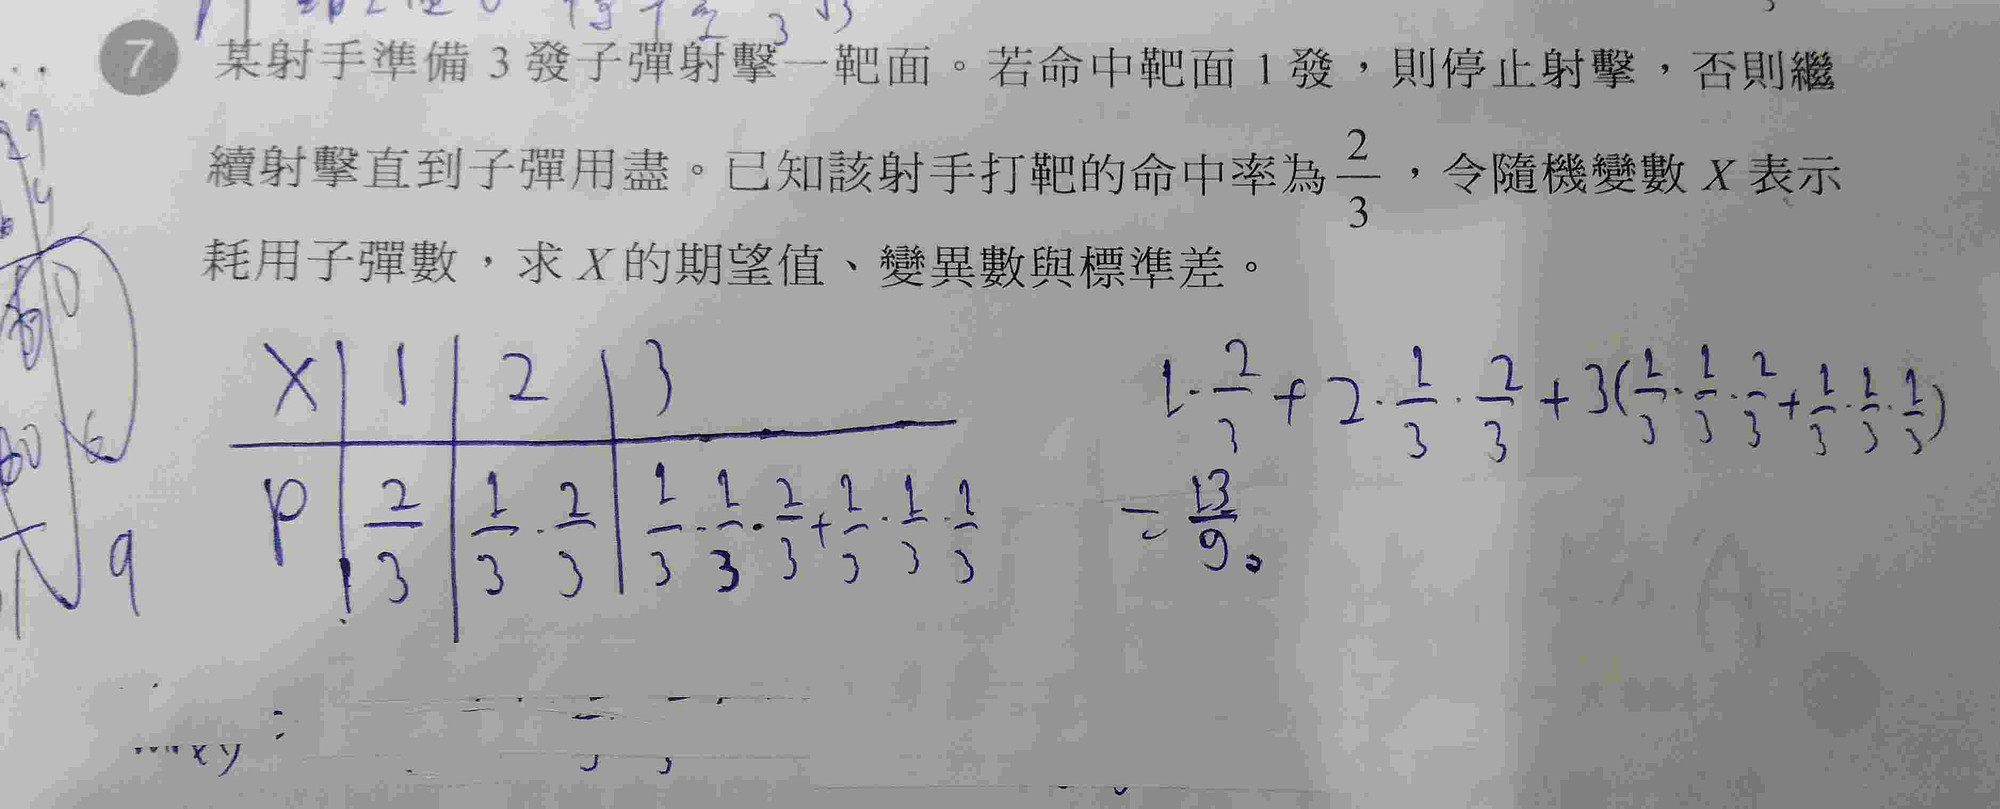 7 某射手準備 3 發子彈射擊一靶面。若命中靶面 1 發,則停止射擊,否則繼
續射擊直到子彈用盡。已知該射手打靶的命中率為 2/3,令隨機變數 X 表示
耗用子彈數,求 X 的期望值、變異數與標準差。
X | 1 | 2 | 3
P | 2/3 | 1/3 · 2/3 | 1/3 · 1/3 · 2/3 + 1/3 · 1/3 · 1/3
1 · 2/3 + 2 · 1/3 · 2/3 + 3(1/3 · 1/3 · 2/3 + 1/3 · 1/3 · 1/3)
= 13/9。